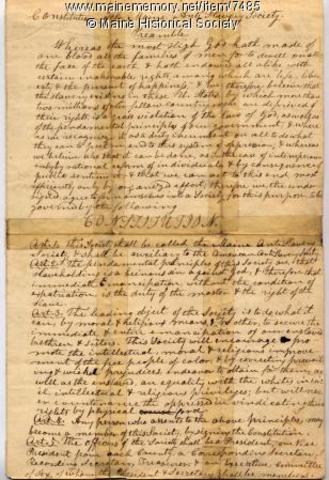 https://www.mainememory.net/item/7485
Constitution Anti Slavery Society.
Preamble
Whereas the most High God hath made of
one blood all the families of men for to dwell on all
the face of the earth, & hath endowed all alike with
certain inalienable rights, among which are life, liber-
ty & the pursuit of happiness; & we therefore believe that
the slavery existing in these U. States by which more than
two millions of our fellow countrymen are deprived of
their rights is a gross violation of the law of God, as well as
of the fundamental principles of our government, & where
as we recognize it as a duty incumbent on all to do what
they can to put an end to this system of oppression, & whereas
we believe also that it can be done, as in the case of intemperance
only by a national reform of individuals & by consequence of
public sentiment, & that we can act to this end most
efficiently only by organized effort; therefore we, the under-
signed agree to form ourselves into a Society for this purpose to be
governed by the following
CONSTITUTION.
Art. 1. This Society shall be called the Maine Anti Slavery
Society & shall be auxiliary to the American Anti Slavery Society.
Art. 2. The fundamental principles of this Society are that
slaveholding is a heinous sin against God, & therefore that
immediate Emancipation without the condition of
expatriation is the duty of the master & the right of the
slave.
Art. 3. The leading object of the Society is to do what it
can, by moral & religious means & no other, to secure the
immediate & entire emancipation of our enslaved
brethren & sisters. This Society will encourage & pro
mote the intellectual, moral & religious improve
ment of the free people of color & by correcting prevail
ing & wicked prejudices endeavor to obtain for them, as
well as the enslaved, an equality with the whites in civ
il, intellectual & religious privileges; but will nev
er countenance the oppressed in vindicating their
rights by physical force.
Art. 4. Any person who assents to the above principles, may
become a member of this Society, by signing the Constitution
Art. 5. The officers of the Society shall be a President, one Vice
President from each County, a Corresponding Secretary,
Recording Secretary, Treasurer & an Executive Committee
of Six, of whom the President & Secretary shall be members
© Maine Historical Society